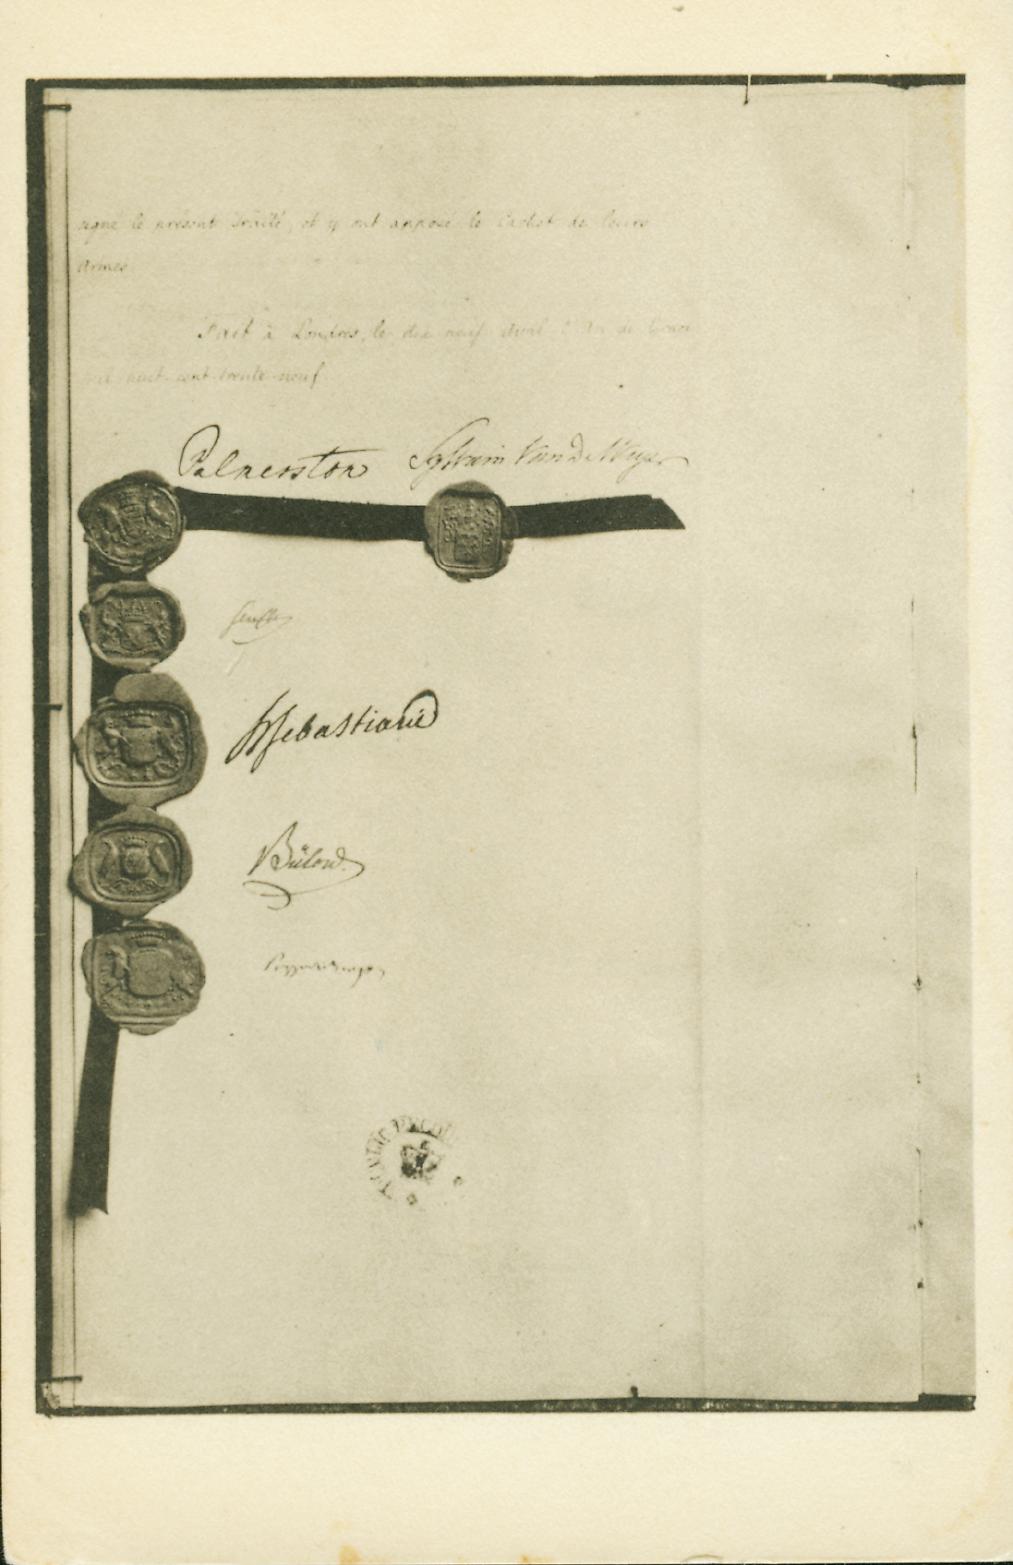 signé le présent Traité, et y ont apposé le Cachet de leurs
Armes.
Fait à Londres, le dix neuf Avril, l'An de Grace
mil huit cent trente neuf.
Palmerston Sylvain Van de Weyer
Senfft
H Sebastiani
Bülow
Pozzo di Borgo
PUBLIC RECORD